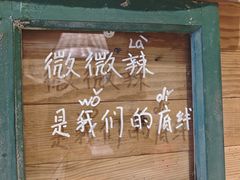 Là
微微辣
wǒ dǐ
是我们的底线